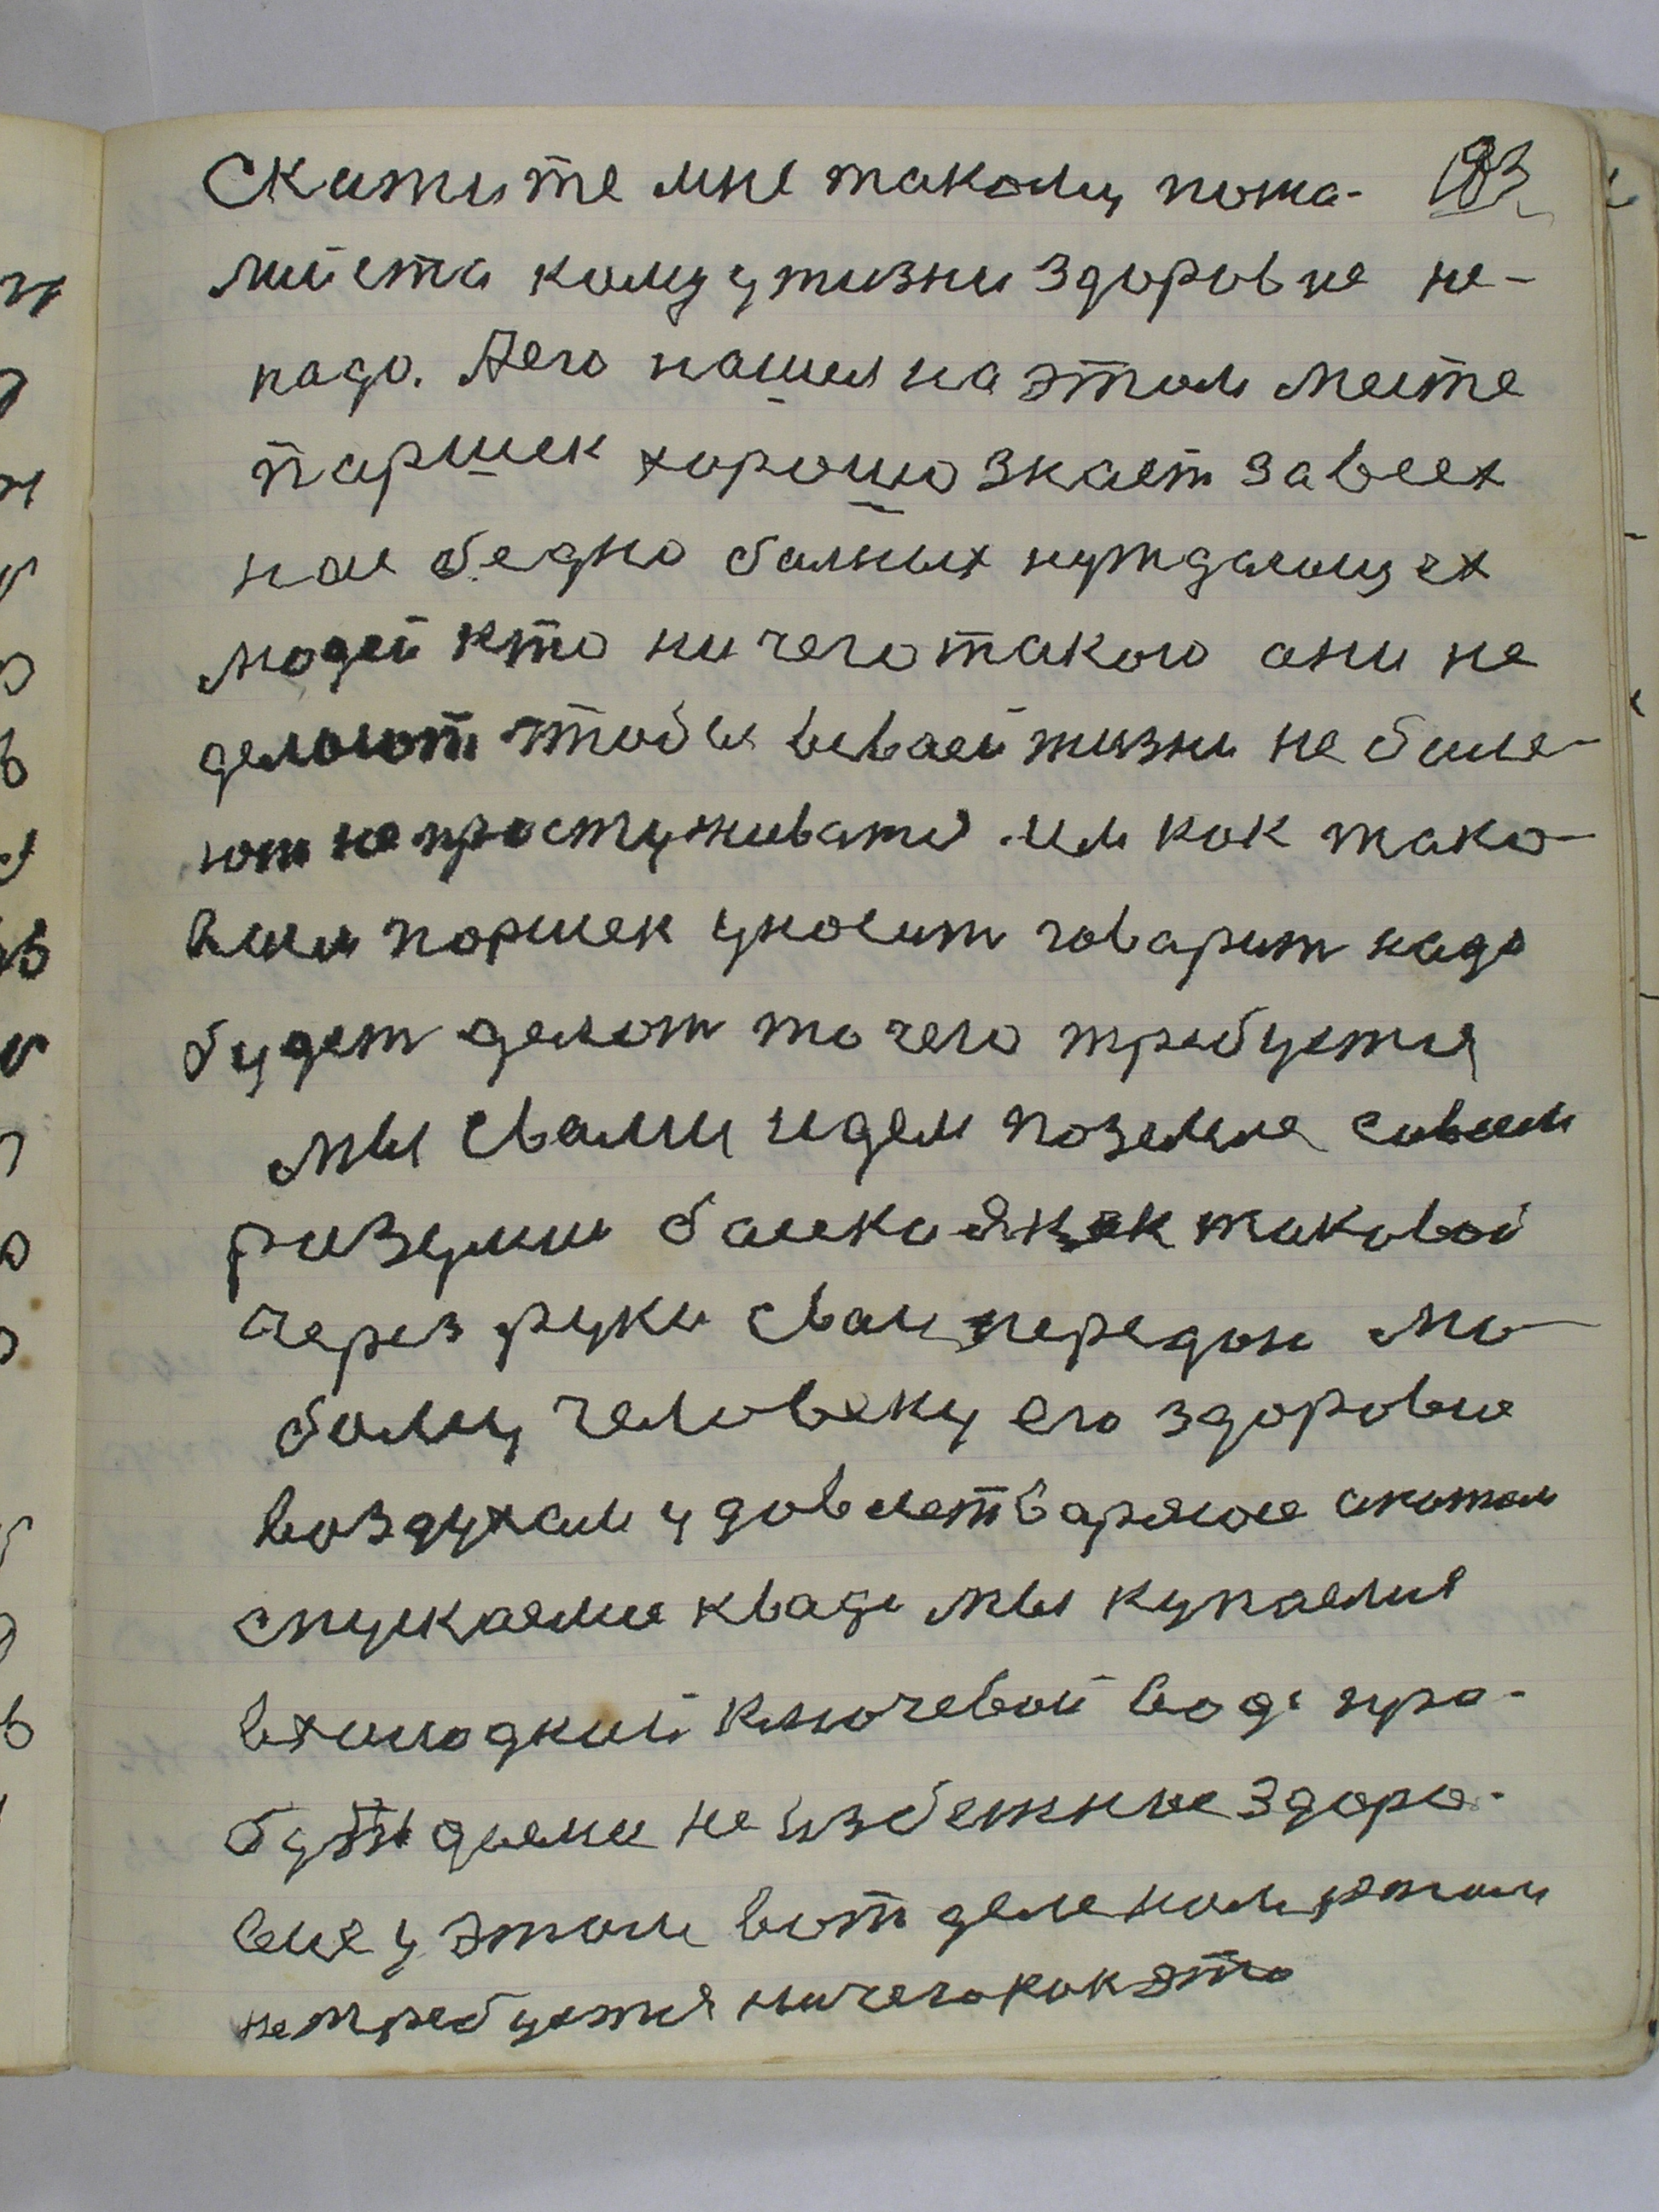 Скажите мне такому пожа- 183
луйста кому у жизни здоровие не-
надо. Аего нашел на этом месте
паршек хорошо знает за всех
нас бедно балных нуждающех
людей кто ничего такого ани не
делают чтобы всваей жизни не боле-
ют не простуживатся им как тако-
вым паршек уносит говарит надо
будет делат то чего требуется
мы свами идем поземле сваем
разумом баекияк как таковой
через руки сваи передам лю-
бому человеку его здоровие
воздухам удовлетваряюсе а потом
спускаемсе кваде мы купаемся
вхолодкий ключевой воде пра-
буждаеми не избежные здоро-
вие у этом вот деле нам этом
не требуется ничего как это